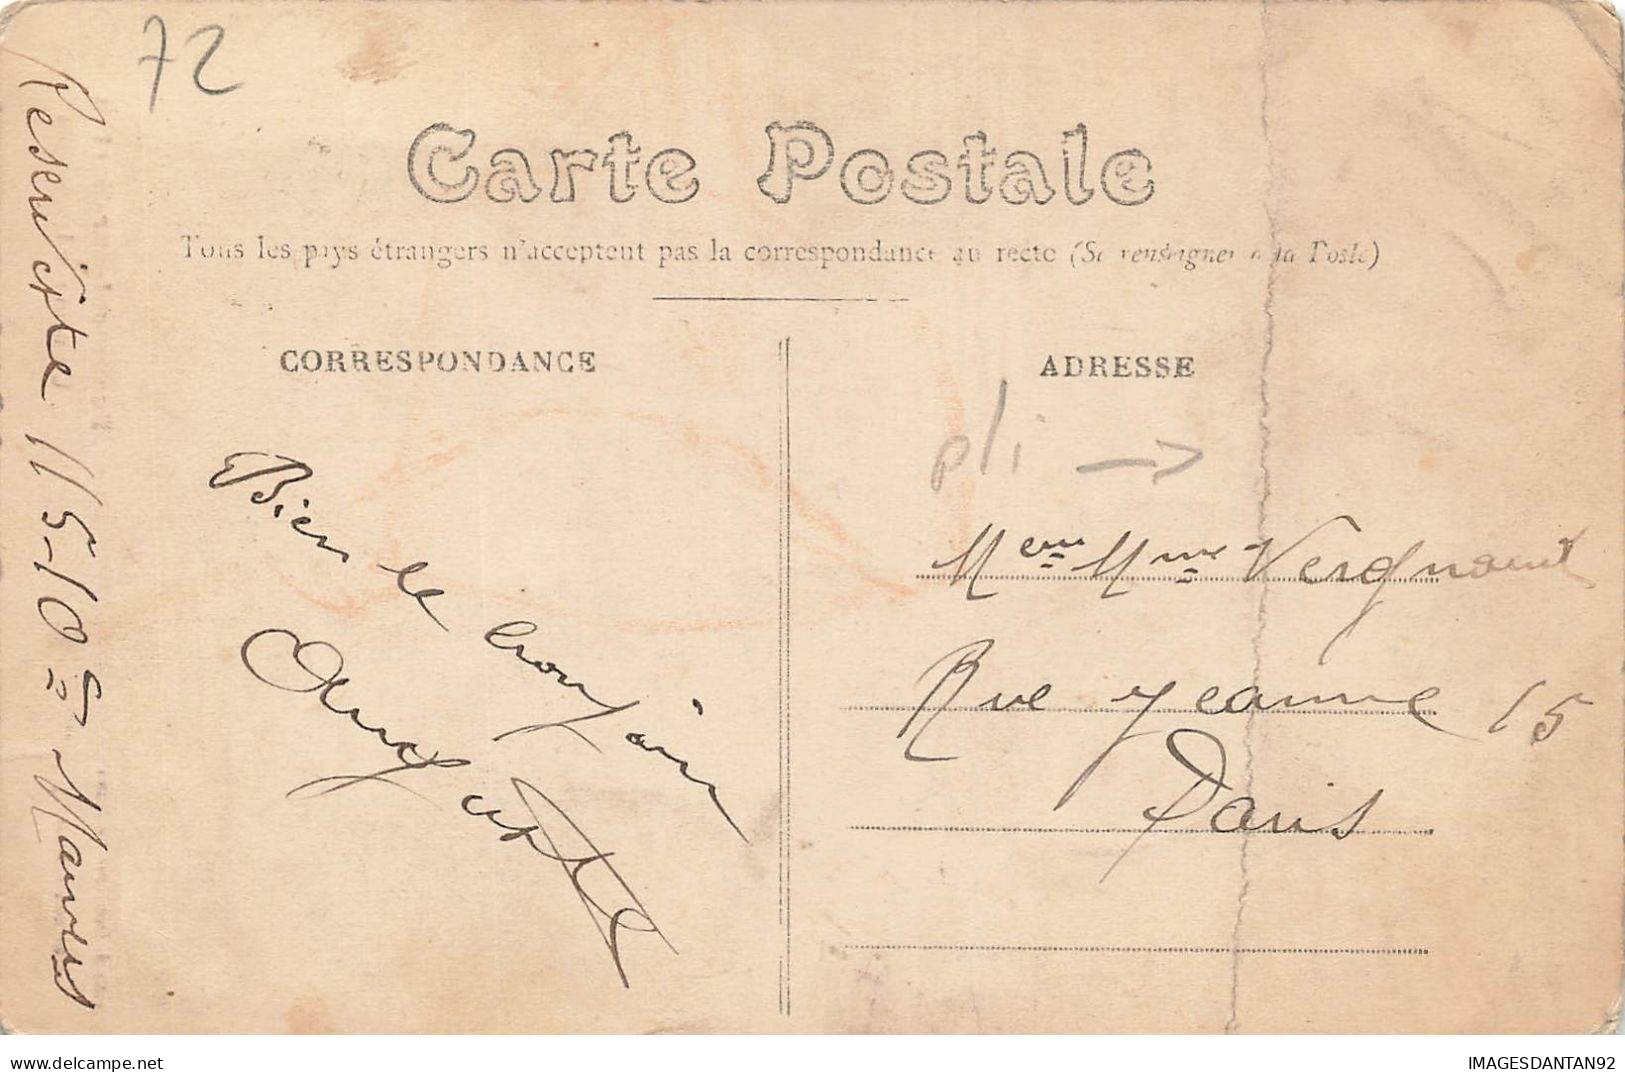 72
Carte Postale
Tous les pays étrangers n'acceptent pas la correspondance au recto (Se renseigner à la Poste)
CORRESPONDANCE
ADRESSE
pli →
Bien le bonjour
Auguste
Meur Mme Vergnaud
Rue Jeanne 15
Paris
Reserviste 115-10e
delcampe.net
IMAGESDANTAN92